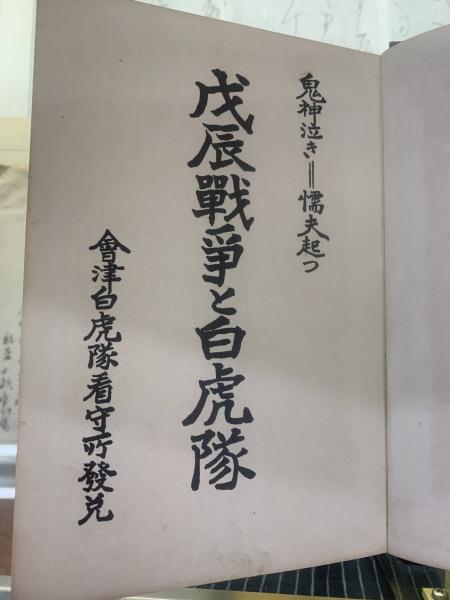 鬼神泣き＝懦夫起つ
戊辰戰爭と白虎隊
會津白虎隊看守所發兌